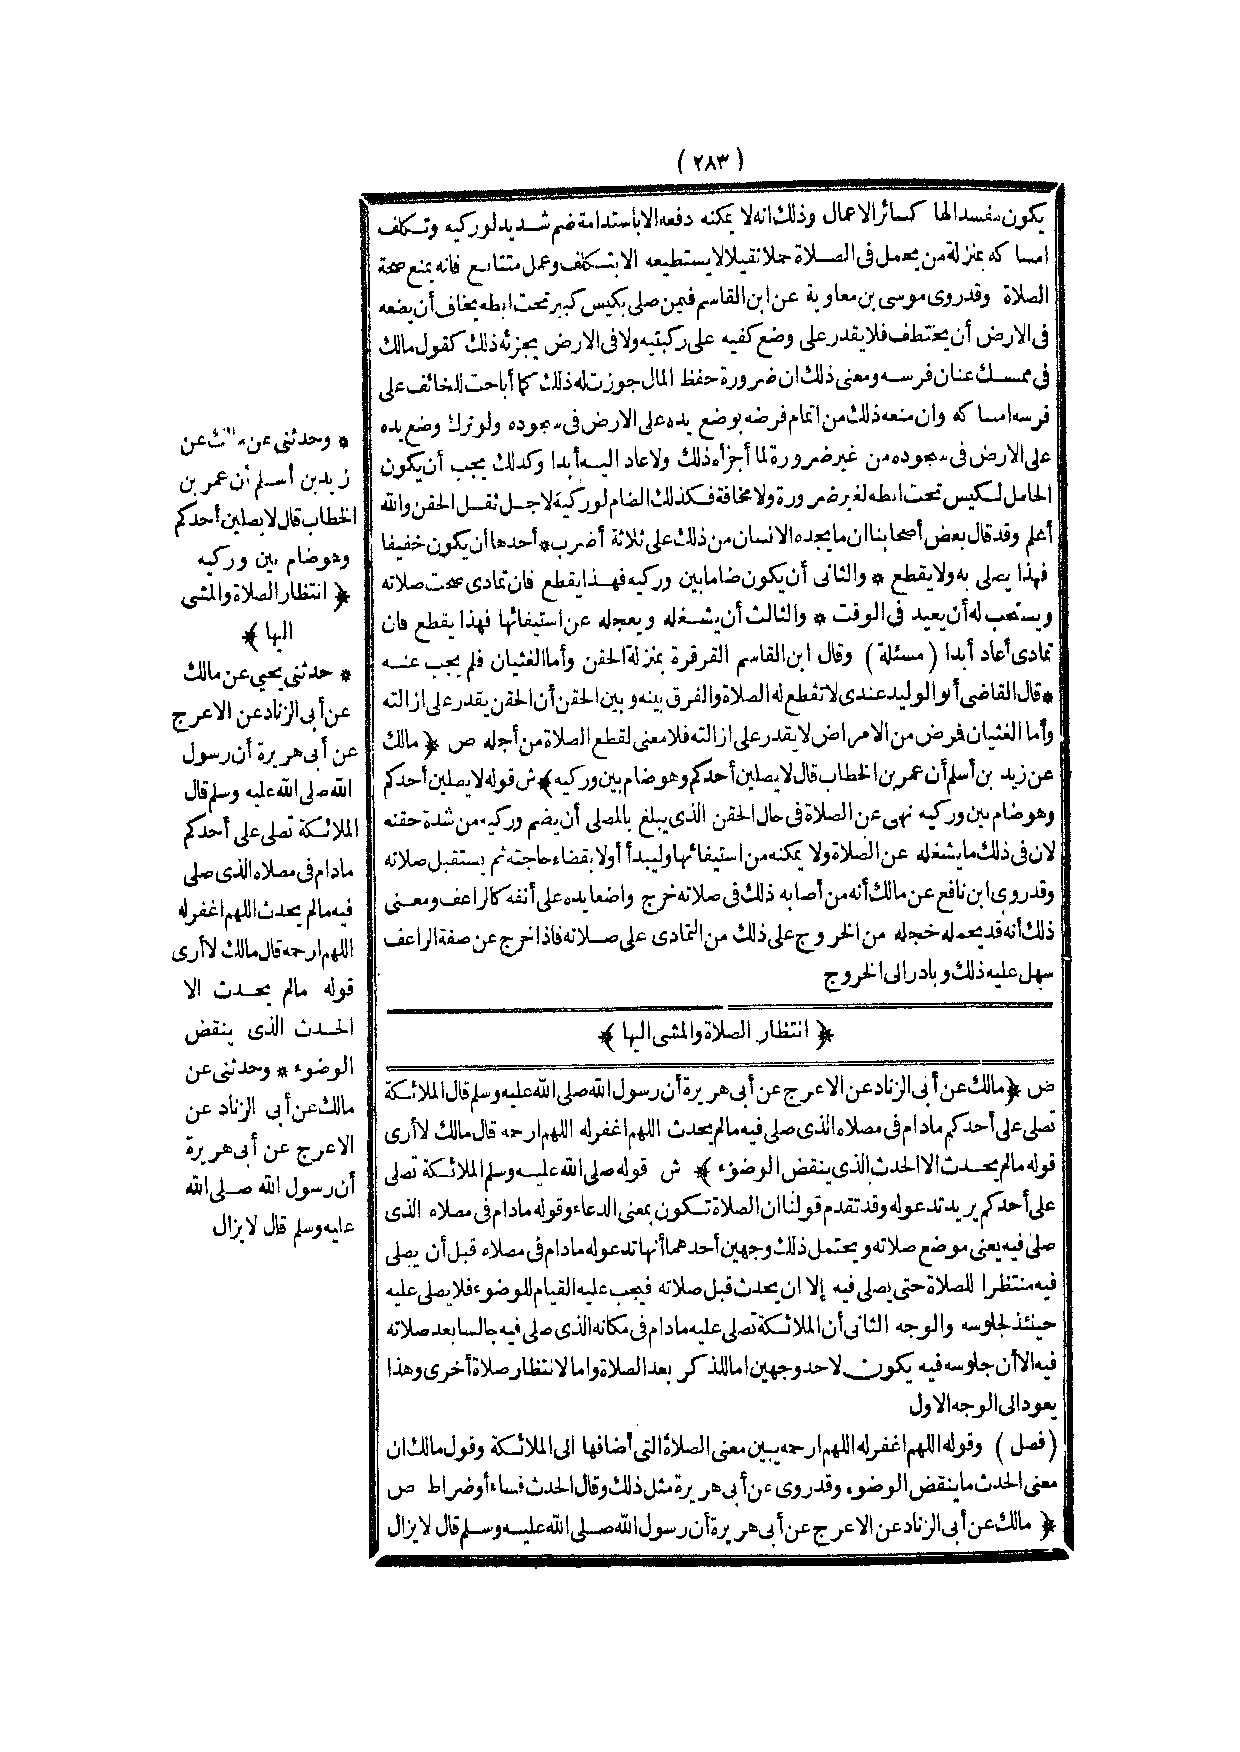 (٢٨٣)
يكون مفسدا لها كسائر الاعمال وذلك انه لا يمكنه دفعه الا باستدامة ضم شديد لوركيه وتكلف
امساكه بمنزلة من يحمل فى الصلاة حملا ثقيلا لا يستطيعه الا بتكلف وعمل متتابع فانه يمنع صحة
الصلاة وقد روى موسى بن معاوية عن ابن القاسم فيمن صلى بكيس كبير تحت ابطه يخاف أن يضعه
فى الارض أن يختطف فلا يقدر على وضع كفيه على ركبتيه ولا فى الارض يجزئه ذلك كقول مالك
فى ممسك عنان فرسه ومعنى ذلك ان ضرورة حفظ المال جوزت له ذلك كما أباحت للخائف على
فرسه امساكه وان منعه ذلك من اتمام فرضه بوضع يده على الارض فى سجوده ولو ترك وضع يده
على الارض فى سجوده من غير ضرورة لما أجزأه ذلك ولا عاد اليه أبدا وكذلك يجب أن يكون
الحامل لكيس تحت ابطه لغير ضرورة ولا مخافة فكذلك الضام لوركيه لاجل ثقل الحقن والله
أعلم وقد قال بعض أصحابنا ان ما يجده الانسان من ذلك على ثلاثة أضرب * أحدها أن يكون خفيفا
فهذا يصلى به ولا يقطع * والثانى أن يكون ضاما بين وركيه فهذا يقطع فان تمادى صحت صلاته
ويستحب له أن يعيد فى الوقت * والثالث أن يشغله ويعجله عن استيفائها فهذا يقطع فان
تمادى أعاد أبدا (مسئلة) وقال ابن القاسم القرقرة بمنزلة الحقن وأما الغثيان فلم يجب عنه
* قال القاضى أبو الوليد عندى لا تقطع له الصلاة والفرق بينه وبين الحقن أن الحقن يقدر على ازالته
وأما الغثيان فمرض من الامراض لا يقدر على ازالته فلا معنى لقطع الصلاة من أجله ص ﴿ مالك
عن زيد بن أسلم أن عمر بن الخطاب قال لا يصلين أحدكم وهو ضام بين وركيه ﴾ ش قوله لا يصلين أحدكم
وهو ضام بين وركيه نهى عن الصلاة فى حال الحقن الذى يبلغ بالمصلى أن يضم وركيه من شدة حقنه
لان فى ذلك ما يشغله عن الصلاة ولا يمكنه من استيفائها وليبدأ أولا بقضاء حاجته ثم يستقبل صلاته
وقد روى ابن نافع عن مالك أنه من أصابه ذلك فى صلاته خرج واضعا يده على أنفه كالراعف ومعنى
ذلك أنه قد يحمله خجله من الخروج على ذلك من التمادى على صلاته فاذا خرج عن صفة الراعف
سهل عليه ذلك وبادر الى الخروج
﴿ انتظار الصلاة والمشى اليها ﴾
ص ﴿ مالك عن أبى الزناد عن الاعرج عن أبى هريرة أن رسول الله صلى الله عليه وسلم قال الملائكة
تصلى على أحدكم مادام فى مصلاه الذى صلى فيه مالم يحدث اللهم اغفر له اللهم ارحمه قال مالك لا أرى
قوله مالم يحدث الا الحدث الذى ينقض الوضوء ﴾ ش قوله صلى الله عليه وسلم الملائكة تصلى
على أحدكم يريد تدعو له وقد تقدم قولنا ان الصلاة تكون بمعنى الدعاء وقوله مادام فى مصلاه الذى
صلى فيه يعنى موضع صلاته ويحتمل ذلك وجهين أحدهما أنها تدعو له مادام فى مصلاه قبل أن يصلى
فيه منتظرا للصلاة حتى يصلى فيه إلا ان يحدث قبل صلاته فيجب عليه القيام للوضوء فلا يصلى عليه
حينئذ لجلوسه والوجه الثانى أن الملائكة تصلى عليه مادام فى مكانه الذى صلى فيه جالسا بعد صلاته
فيه الا أن جلوسه فيه يكون لاحد وجهين اما للذكر بعد الصلاة واما لانتظار صلاة أخرى وهذا
يعود الى الوجه الاول
(فصل) وقوله اللهم اغفر له اللهم ارحمه يبين معنى الصلاة التى أضافها الى الملائكة وقول مالك ان
معنى الحدث ما ينقض الوضوء وقد روى عن أبى هريرة مثل ذلك وقال الحدث فساء أو ضراط ص
﴿ مالك عن أبى الزناد عن الاعرج عن أبى هريرة أن رسول الله صلى الله عليه وسلم قال لا يزال
* وحدثنى عن مالك عن
زيد بن أسلم أن عمر بن
الخطاب قال لا يصلين أحدكم
وهو ضام بين وركيه
﴿ انتظار الصلاة والمشى
اليها ﴾
* حدثنى يحيى عن مالك
عن أبى الزناد عن الاعرج
عن أبى هريرة أن رسول
الله صلى الله عليه وسلم قال
الملائكة تصلى على أحدكم
مادام فى مصلاه الذى صلى
فيه مالم يحدث اللهم اغفر له
اللهم ارحمه قال مالك لا أرى
قوله مالم يحدث الا
الحدث الذى ينقض
الوضوء * وحدثنى عن
مالك عن أبى الزناد عن
الاعرج عن أبى هريرة
أن رسول الله صلى الله
عليه وسلم قال لا يزال